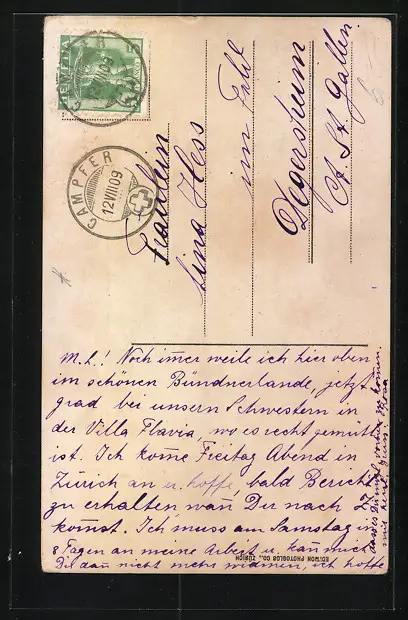 HELVETIA
CAMPFER
12VIII09
Fräulein
Lina Hess
im Feld
Degersheim
Ct. St. Gallen.
M. L.! Noch im̅er weile ich hier oben
im schönen Bündnerlande, jetzt
grad bei unsern Schwestern in
der Villa Flavia, wo es recht gemütl.
ist. Ich kom̅e Freitag Abend in
Zürich an u. hoffe bald Bericht
zu erhalten wan̅ Du nach Z.
kom̅st. Ich muss am Samstag in
8 Tagen an meine Arbeit u. kan̅ mich
Dir dan̅ nicht mehr widmen, ich hoffe
dass Du mal vorher
mit herzl. Gruss Rosa
EDITION PHOTOGLOB CO., ZÜRICH